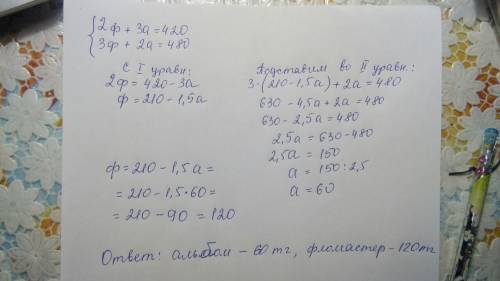 2ф + 3а = 420
3ф + 2а = 480
С I уравн.:
2ф = 420 - 3а
ф = 210 - 1,5а
Подставим во II уравн.:
3·(210 - 1,5а) + 2а = 480
630 - 4,5а + 2а = 480
630 - 2,5а = 480
2,5а = 630 - 480
2,5а = 150
а = 150 : 2,5
а = 60
ф = 210 - 1,5а =
= 210 - 1,5·60 =
= 210 - 90 = 120
Ответ: альбом - 60 тг, фломастер - 120 тг